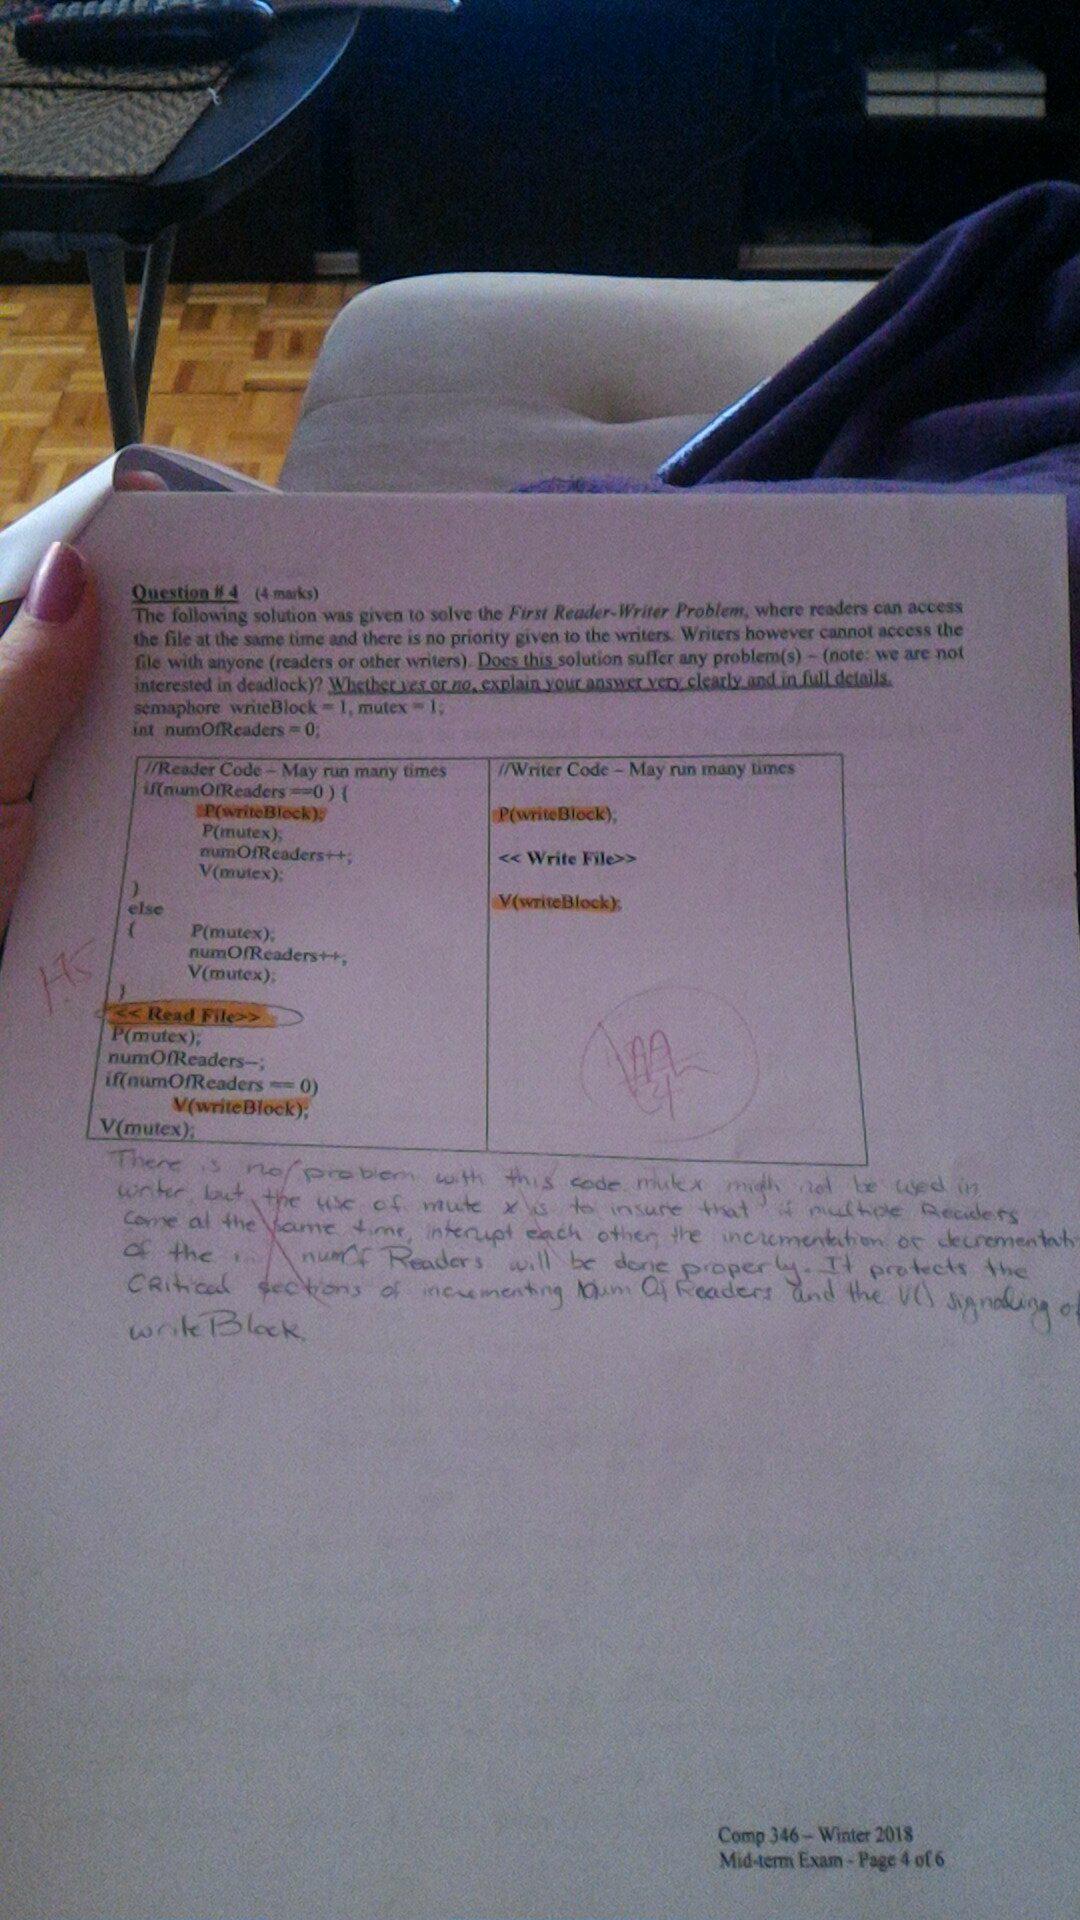 Question # 4 (4 marks)
The following solution was given to solve the First Reader-Writer Problem, where readers can access
the file at the same time and there is no priority given to the writers. Writers however cannot access the
file with anyone (readers or other writers). Does this solution suffer any problem(s) – (note: we are not
interested in deadlock)? Whether yes or no, explain your answer very clearly and in full details.
semaphore writeBlock = 1, mutex = 1;
int numOfReaders = 0;
//Reader Code – May run many times
if(numOfReaders ==0 ) {
P(writeBlock);
P(mutex);
numOfReaders++;
V(mutex);
}
else
{ P(mutex);
numOfReaders++;
V(mutex);
}
<< Read File>>
P(mutex);
numOfReaders--;
if(numOfReaders == 0)
V(writeBlock);
V(mutex);
//Writer Code – May run many times
P(writeBlock);
<< Write File>>
V(writeBlock);
There is no problem with this code. mutex migh not be used in
writer, but the use of mute x is to insure that if multiple Readers
come at the same time, interupt each other, the incrementation or decrementati
of the numOf Readers will be done properly. It protects the
Critical sections of incrementing Num Of Readers and the V() signaling of
writeBlock.
Comp 346 – Winter 2018
Mid-term Exam - Page 4 of 6